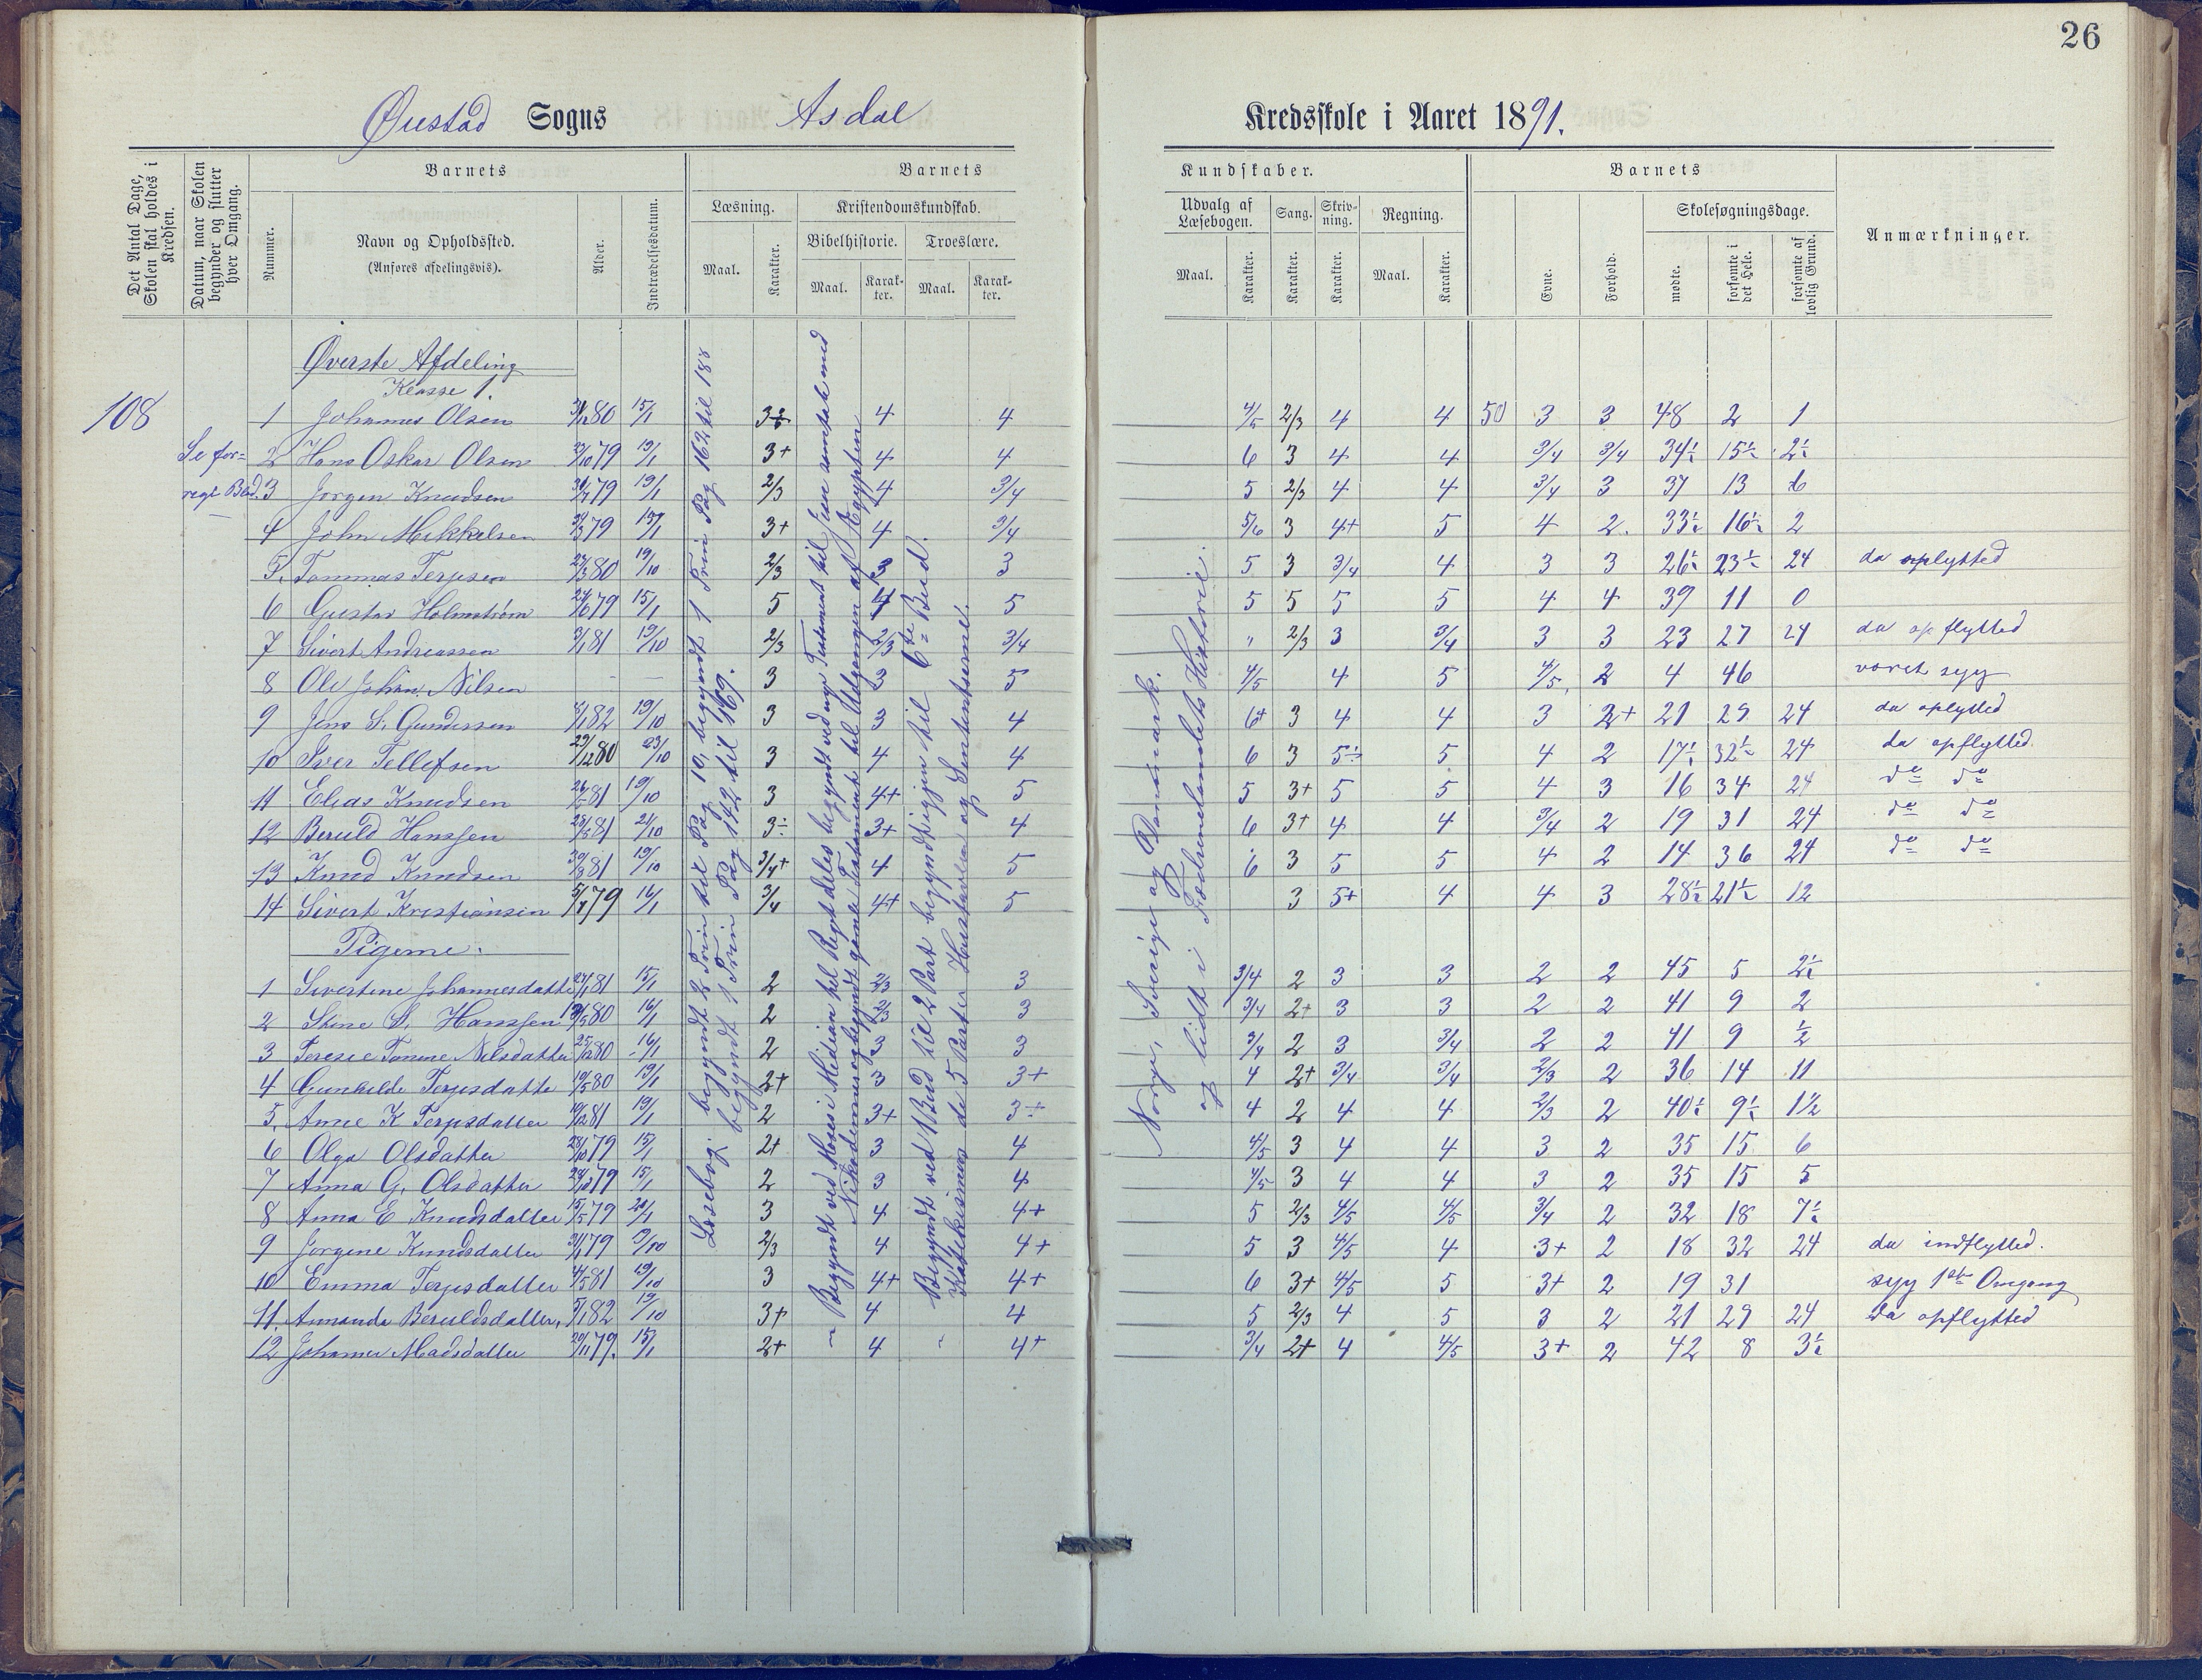 26
Øiestad Sogns Asdal Kredsskole i Aaret 1891.
Det Antal Dage, Skolen skal holdes i Kredsen.
Datum, naar Skolen begynder og slutter hver Omgang.
Nummer.
Barnets
Navn og Opholdssted.
(Anføres afdelingsvis).
Alder.
Indtrædelsesdatum.
Barnets
Læsning.
Maal.
Karakter.
Kristendomskundskab.
Bibelhistorie. Troeslære.
Maal. Karakter. Maal. Karakter.
Kundskaber.
Udvalg af Læsebogen. Sang. Skrivning. Regning.
Maal. Karakter. Karakter. Karakter. Maal. Karakter.
Barnets
Evne. Forhold.
Skolesøgningsdage.
mødte. forsømte i det Hele. forsømte af lovlig Grund.
Anmærkninger.
Øverste Afdeling
Klasse 1.
108
Se for=
rege Blad.
1 Johannes Olsen 80 15/1 4 4 4/5 2/3 4 4 50 3 3 48 2 1
2 Hans Oskar Olsen 79 19/1 3+ 4 4 6 3 4 4 3/4 3/4 34½ 15½ 2½
3 Jørgen Knudsen 79 19/1 2/3 4 3/4 5 2/3 4 4 3/4 3 37 13 6
4 John Mikkelsen 79 3+ 4 3/4 5/6 3 4+ 5 4 2 33½ 16½ 2
5. Tommas Terjesen 80 19/10 2/3 3 3 5 3 3/4 4 3 3 26½ 23½ 24 da oplytted
6 Gustav Holmstrøm 79 15/1 5 4 5 5 5 5 5 4 4 39 11 0
7 Sivert Andreassen 81 19/10 2/3 2/3 3/4 " 2/3 3 3/4 3 3 23 27 24 da opflytted
8 Ole Johan Nilsen — — 3 3 5 4/5 4 5 4/5 2 4 46 været syg
9 Jens S. Gundersen 82 19/10 3 3 4 6+ 3 4 4 3 2+ 21 29 24 da oplytted
10 Iver Tellefsen 29/12 80 23/10 3 4 4 6 3 5÷ 5 4 2 17½ 32½ 24 da opflytted.
11 Elias Knudsen 81 19/10 3 4+ 5 5 3+ 5 5 4 3 16 34 24 do do
12 Beruld Hanssen 81 21/10 3÷ 3+ 4 6 3+ 4 4 3/4 2 19 31 24 do do
13 Knud Knudsen 81 19/10 3/4+ 4 5 6 3 5 5 4 2 14 36 24 do do
14 Sivert Kristiansen 79 16/1 3/4 4+ 5 3 5+ 4 4 3 28½ 21½ 12
Pigerne.
1 Sivertine Johannesdatter 81 15/1 2 2/3 3 3/4 2 3 3 2 2 45 5 2½
2 Stine S. Hanssen 80 16/1 2 3 3/4 2+ 3 3 2 2 41 9 2
3 Terese Tomine Nilsdatter 80 16/1 2 3 3 3/4 2 3 3/4 2 2 41 9 ½
4 Gunhilde Terjesdatter 80 19/1 2+ 3 3+ 4 2+ 3/4 3/4 2/3 2 36 14 11
5. Anne K Terjesdatter 81 19/1 2 3+ 3÷ 4 2 4 4 2/3 2 40½ 9½ 1½
6 Olga Olsdatter 79 15/1 2+ 3 4 4/5 3 4 4 3 2 35 15 6
7 Anna G. Olsdatter 79 15/1 2 3 4 4/5 3 4 4 3 2 35 15 5
8 Anna E Knudsdatter 79 3 4 4+ 5 2/3 4/5 4/5 3/4 2 32 18 7½
9 Jørgine Knudsdatter 79 2/3 4 4+ 5 3 4/5 4 3+ 2 18 32 24 da indflytted.
10 Emma Terjesdatter 81 19/10 3 4+ 4+ 6 3+ 4/5 5 3+ 2 19 31 syg 1ste Omgang
11. Amanda Beruldsdatter, 82 19/10 3+ 4 4 5 2/3 4 5 3 2 21 29 24 da opflytted
12 Johanne Madsdatter 79. 15/1 2+ 4 4+ 3/4 2+ 4 4/5 3+ 2 42 8 3½
Læsebog: begyndt 2 Trin til Pag 10, begyndt 1 Trin Pag 162 til 188
begyndt 1 Trin Pag 142 til 169.
Begyndt ved Moses i Midian til Rigets deles begyndt ved nye Testament til Jesu samtale med
Nikodemus og begyndt gamle Testamente til Udgangen af Ægypten
Begyndt ved 1 Bud til 2 Part begyndt igjen til 6te Bud.
Katekismus de 5 Parter Hustavlen og Sententserne.
Norge, Sverige og Danmark.
og lidt i Fædrenelandets Historie.